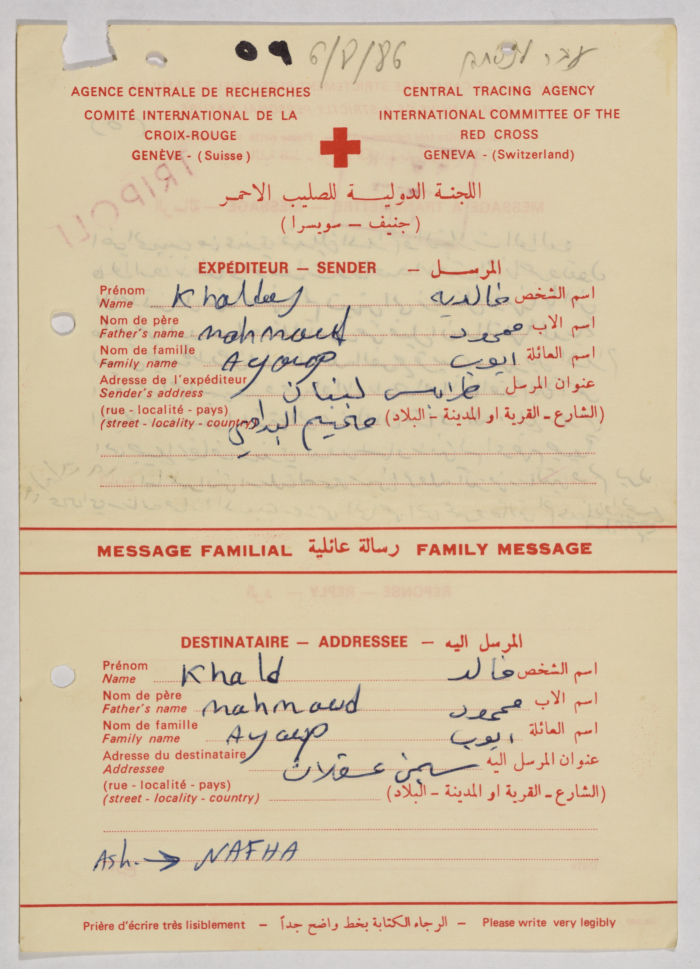 09 6/8/86
AGENCE CENTRALE DE RECHERCHES
COMITÉ INTERNATIONAL DE LA
CROIX-ROUGE
GENÈVE - (Suisse)
CENTRAL TRACING AGENCY
INTERNATIONAL COMMITTEE OF THE
RED CROSS
GENEVA - (Switzerland)
TRIPOLI
اللجنة الدولية للصليب الاحمر
(جنيف – سويسرا)
EXPÉDITEUR – SENDER – المرسل
Prénom
Name Khaldey خالديه اسم الشخص
Nom de père
Father's name mahmoud محمود اسم الاب
Nom de famille
Family name Ayoup ايوب اسم العائلة
Adresse de l'expéditeur
Sender's address طرابلس لبنان عنوان المرسل
(rue - localité - pays)
(street - locality - country) مخيم البداوي (الشارع - القرية او المدينة - البلاد)
MESSAGE FAMILIAL رسالة عائلية FAMILY MESSAGE
DESTINATAIRE – ADDRESSEE – المرسل اليه
Prénom
Name Khald خالد اسم الشخص
Nom de père
Father's name mahmoud محمود اسم الاب
Nom de famille
Family name Ayoup ايوب اسم العائلة
Adresse du destinataire
Addressee سجن عسقلان عنوان المرسل اليه
(rue - localité - pays)
(street - locality - country) (الشارع - القرية او المدينة - البلاد)
Ash. → NAFHA
Prière d'écrire très lisiblement – الرجاء الكتابة بخط واضح جداً – Please write very legibly